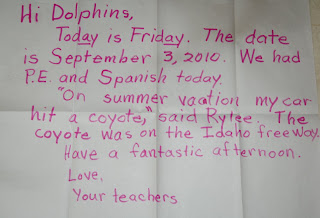 Hi Dolphins,
Today is Friday. The date
is September 3, 2010. We had
P.E. and Spanish today.
"On summer vaation my car
hit a coyote," said Rylee. The
coyote was on the Idaho freeway.
Have a fantastic afternoon.
Love,
Your teachers